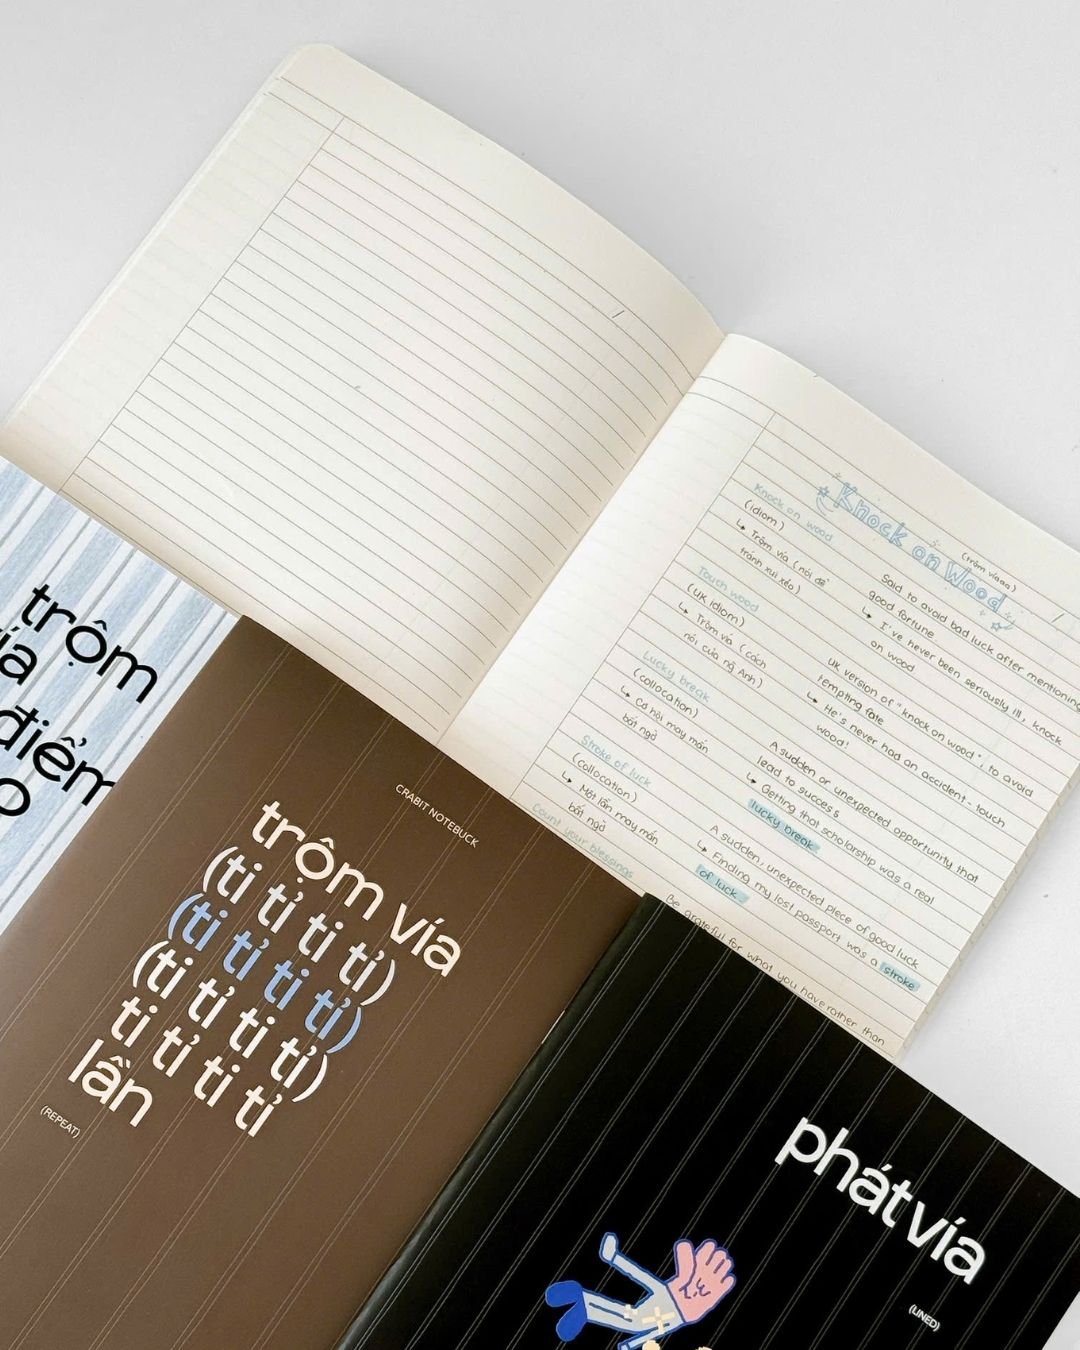 Knock on Wood
(trộm víaaa)
Knock on wood
(idiom)
↳ Trộm vía (nói để
tránh xui xẻo)
Said to avoid bad luck after mentioning
good fortune
↳ I've never been seriously ill, knock
on wood
Touch wood
(UK idiom)
↳ Trộm vía (cách
nói của ng Anh)
UK version of "knock on wood", to avoid
tempting fate
↳ He's never had an accident - touch
wood!
Lucky break
(collocation)
↳ Cơ hội may mắn
bất ngờ
A sudden or unexpected opportunity that
lead to success
↳ Getting that scholarship was a real
lucky break.
Stroke of luck
(collocation)
↳ Một lần may mắn
bất ngờ
A sudden, unexpected piece of good luck
↳ Finding my lost passport was a stroke
of luck.
Count your blessings
Be grateful for what you have rather than
trộm
vía
điểm
CRABIT NOTEBUCK
trộm vía
(ti tỉ ti tỉ)
(ti tỉ ti tỉ)
(ti tỉ ti tỉ)
ti tỉ ti tỉ
lần
(REPEAT)
phát vía
(LINED)